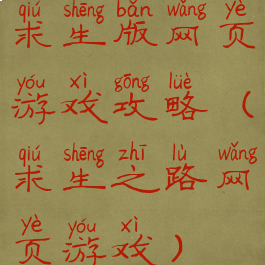 qiú shēng bǎn wǎng yè
求生版网页
yóu xì gōng lüè
游戏攻略（
qiú shēng zhī lù wǎng
求生之路网
yè yóu xì
页游戏）